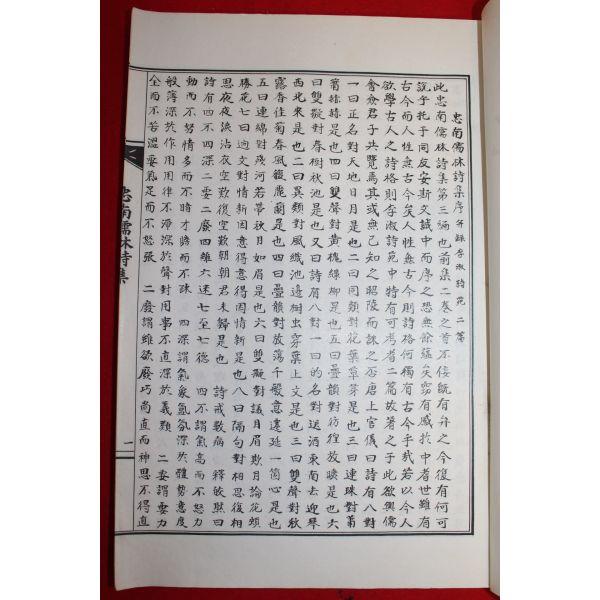 忠南儒林詩集序 李淑詩苑二篇
此忠南儒林詩集第三編也前集二卷之首不侫旣有弁之今復有何可
說乎托于同友安斯文誠中而序之恐無餘蘊矣窃有感於中者世雖有
古今而人性無古今矣人性無古今則詩格何獨有古今乎哉若以今人
欲學古人之詩格則李淑詩苑中特有可考者二篇故著之于此欲與儒
會僉君子共覽焉其或無已知之昭陵而誅之否唐上官儀曰詩有八對
一曰正名對天地日月是也二曰同類對花葉草芽是也三曰連珠對蕭
蕭赫赫是也四曰雙聲對黃槐綠柳是也五曰疊韻對彷徨放曠是也六
曰雙擬對春樹秋池是也又曰詩有八對一曰的名對送酒東南去迎琴
西北來是也二曰異類對風織池邊樹虫穿葉上文是也三曰雙聲對秋
露香佳菊春風馥麗蘭是也四曰疊韻對放蕩千般意遷延一箇心是也
五曰連綿對殘河若帶秋月如眉是也六曰雙擬對議月眉欺月論花頰
勝花七曰逈文對情新因意得意得因情新是也八曰隔句對相思復相
思夜夜淚沾衣空歎復空歎朝朝君未歸是也 詩戒數病 釋皎然曰
詩有四不四深二要二廢四離六迷七至七德 四不謂氣高而不怒力
勁而不露情多而不暗才贍而不疎 四深謂氣象氤氳深於體勢意度
般薄深於作用用律不滯深於聲對用事不直深於義類 二要謂要力
全而不苦澁要氣足而不怒張 二廢謂雖欲廢巧尙直而神思不得直
忠南儒林詩集
一